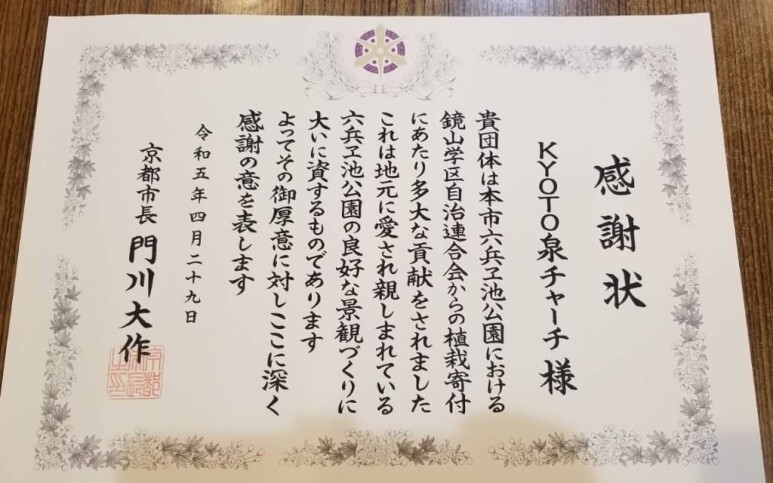 感謝状
KYOTO泉チャーチ 様
貴団体は本市六兵ヱ池公園における
鏡山学区自治連合会からの植栽寄付
にあたり多大な貢献をされました
これは地元に愛され親しまれている
六兵ヱ池公園の良好な景観づくりに
大いに資するものであります
よってその御厚意に対しここに深く
感謝の意を表します
令和五年四月二十九日
京都市長 門川大作